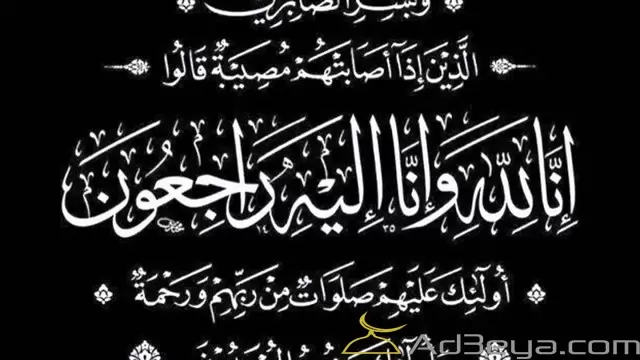 وَبَشِّرِ الصَّابِرِينَ
الَّذِينَ إِذَا أَصَابَتْهُمْ مُصِيبَةٌ قَالُوا
إِنَّا لِلَّهِ وَإِنَّا إِلَيْهِ رَاجِعُونَ
أُولَئِكَ عَلَيْهِمْ صَلَوَاتٌ مِنْ رَبِّهِمْ وَرَحْمَةٌ
Ad3eya.com